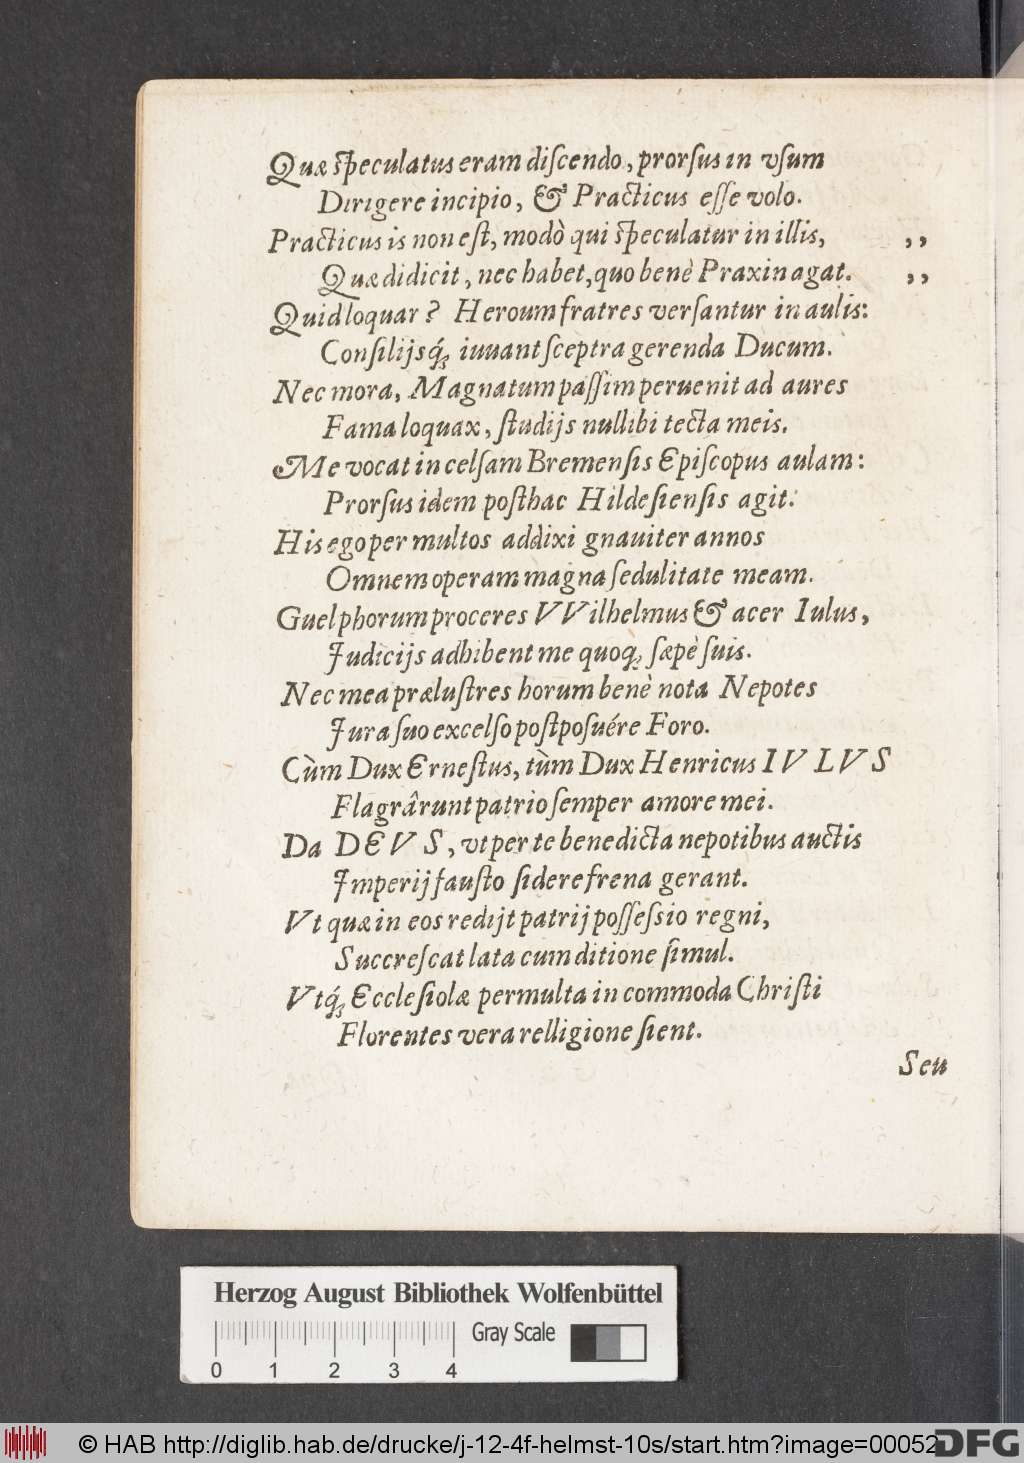 Quæ ſpeculatus eram diſcendo, prorſus in vſum
Dirigere incipio, & Practicus eſſe volo.
Practicus is non eſt, modò qui ſpeculatur in illis, ,,
Quæ didicit, nec habet, quo benè Praxin agat. ,,
Quid loquar? Heroum fratres verſantur in aulis:
Conſilijsq́; iuuant ſceptra gerenda Ducum.
Nec mora, Magnatum paſſim peruenit ad aures
Fama loquax, ſtudijs nullibi tecta meis.
Me vocat in celſam Bremenſis Epiſcopus aulam:
Prorſus idem poſthac Hildeſienſis agit.
His ego per multos addixi gnauiter annos
Omnem operam magna ſedulitate meam.
Guelphorum proceres VVilhelmus & acer Iulus,
Judicijs adhibent me quoq; ſæpè ſuis.
Nec mea præluſtres horum benè nota Nepotes
Jura ſuo excelſo poſtpoſuére Foro.
Cùm Dux Erneſtus, tùm Dux Henricus IVLVS
Flagrârunt patrio ſemper amore mei.
Da DEVS, vt per te benedicta nepotibus auctis
Imperij fauſto ſidere frena gerant.
Vt quæ in eos redijt patrij poſſeſsio regni,
Succreſcat lata cum ditione ſimul.
Vtq́; Eccleſiolæ permulta in commoda Chriſti
Florentes vera relligione ſient.
Seu
Herzog August Bibliothek Wolfenbüttel
Gray Scale
0 1 2 3 4
© HAB http://diglib.hab.de/drucke/j-12-4f-helmst-10s/start.htm?image=00052
DFG